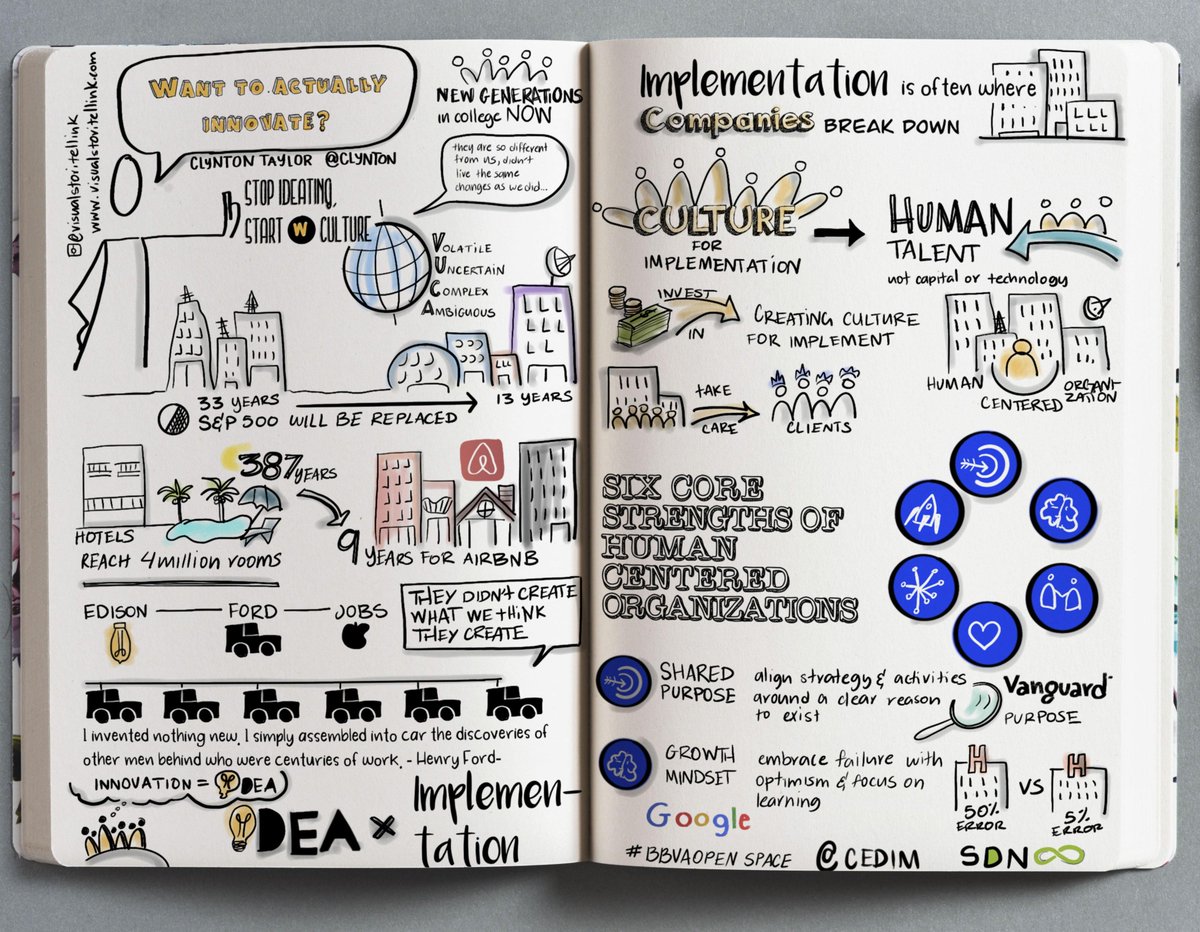 @evisualstoritellink
www.visualstoritellink.com
WANT TO ACTUALLY
INNOVATE?
CLYNTON TAYLOR @CLYNTON
STOP IDEATING,
START W CULTURE
NEW GENERATIONS
in college NOW
they are so different
from us, didn't
live the same
changes as we did...
VOLATILE
UNCERTAIN
COMPLEX
AMBIGUOUS
33 YEARS
13 YEARS
S&P 500 WILL BE REPLACED
387 YEARS
HOTELS
REACH 4 million rooms
9 YEARS FOR AIRBNB
EDISON
FORD
JOBS
THEY DIDN'T CREATE
WHAT WE THINK
THEY CREATE
I invented nothing new. I simply assembled into car the discoveries of
other men behind who were centuries of work. - Henry Ford-
INNOVATION = IDEA
IDEA x
Implemen-
tation
Implementation is often where
Companies BREAK DOWN
CULTURE
FOR
IMPLEMENTATION
HUMAN
TALENT
not capital or technology
INVEST
IN
CREATING CULTURE
FOR IMPLEMENT
HUMAN
CENTERED
ORGANI
ZATION
TAKE
CARE
CLIENTS
SIX CORE
STRENGTHS OF
HUMAN
CENTERED
ORGANIZATIONS
SHARED
PURPOSE
align strategy & activities
around a clear reason
to exist
Vanguard
PURPOSE
GROWTH
MINDSET
embrace failure with
optimism & focus on
learning
Google
H
50%
ERROR
VS
H
5%
ERROR
#BBVAOPEN SPACE
@CEDIM
SDN